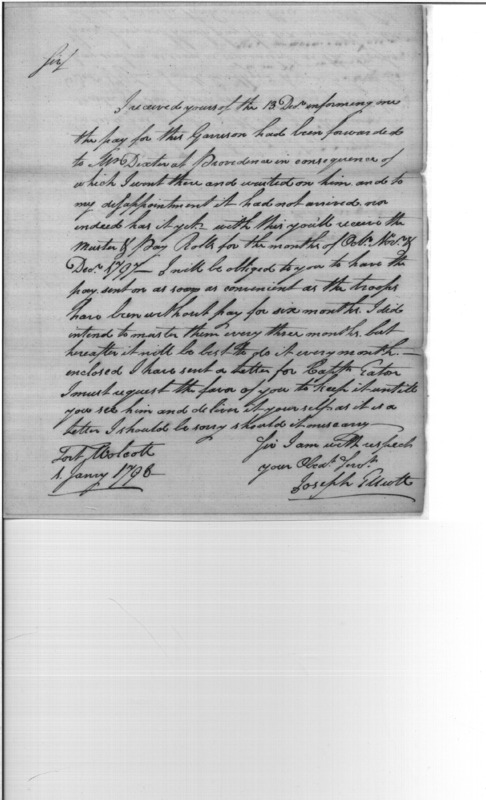 Sir/
I received yours of the 13 Decr. informing me
the pay for this Garrison had been forwarded
to Mr. Dexter at Providence in consequence of
which I went there and waited on him and to
my disappointment it had not arrived nor
indeed has it yet - with this you'll receive the
Muster & Pay Rolls for the months of Octr. Novr. &
Decr. 1797 - I will be obliged to you to have the
pay sent on as soon as convenient as the troops
have been without pay for six months. I did
intend to muster them every three months. but
hereafter it will be best to do it every month. -
enclosed I have sent a letter for Captn. Eaton
I must request the favor of you to keep it untill
you see him and deliver it yourself as it is a
letter I should be sorry should it miscarry
Sir I am with respect
your Obedt. Servt.
Joseph Elliott
Fort Wolcott
1. Janry 1798